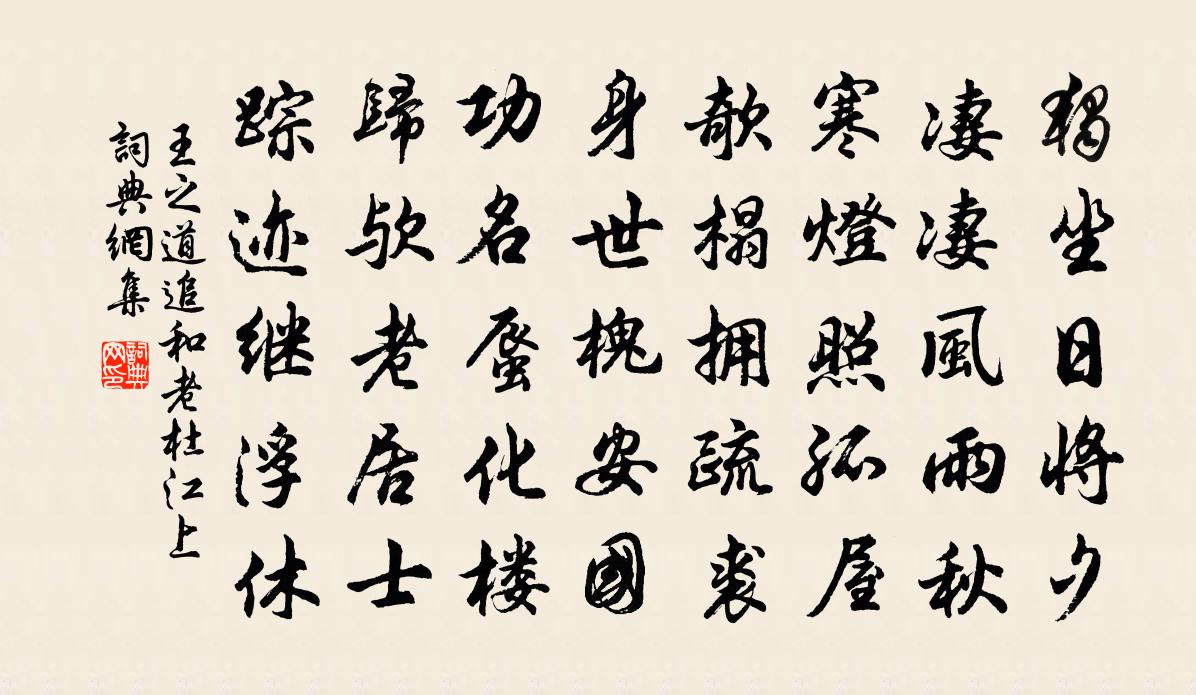 獨坐日將夕
凄凄風雨秋
寒燈照孤屋
欹榻拥疏裘
身世槐安國
功名蜃化楼
歸欤老居士
踪迹继浮休
王之道追和老杜江上
詞典網集
詞典网印